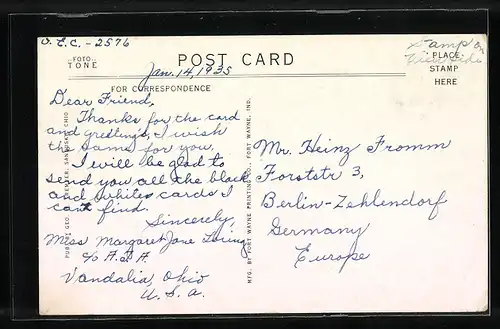 O.E.C. - 2576
POST CARD
FOTO
TONE
Stamp on
View Side
PLACE
STAMP
HERE
Jan. 14, 1935
FOR CORRESPONDENCE
Dear Friend,
Thanks for the card
and greetings, I wish
the same for you.
I will be glad to
send you all the black
and white cards I
can't find.
Sincerely,
Miss Margaret Jane
c/o A. & A.
Vandalia, Ohio
U.S.a.
SANDUSKY, OHIO
MFG. BY FORT WAYNE PRINTING CO., FORT WAYNE, IND.
Mr. Heinz Fromm
Forststr 3,
Berlin-Zehlendorf
Germany
Europe